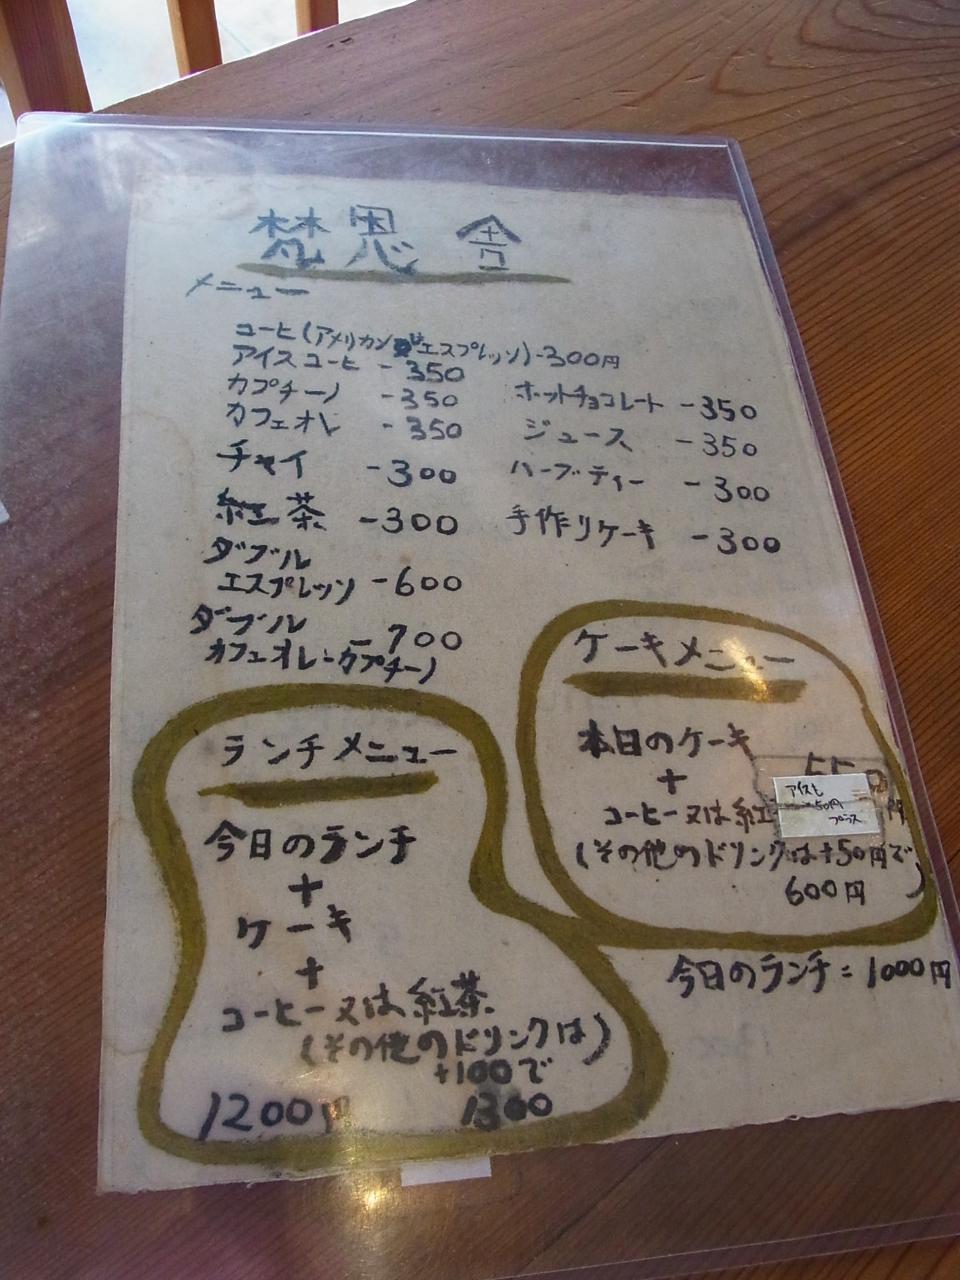 梵恩舎
メニュー
コーヒ(アメリカン又はエスプレッソ)-300円
アイスコーヒ -350
カプチーノ -350
カフェオレ -350
チャイ -300
紅茶 -300
ダブル
エスプレッソ -600
ダブル
カフェオレ-カプチーノ -700
ホットチョコレート -350
ジュース -350
ハーブティー -300
手作りケーキ -300
ケーキメニュー
本日のケーキ
+
コーヒー又は紅
アイスも
50円
プラス
(その他のドリンクは+50円で)
600円
今日のランチ=1000円
ランチメニュー
今日のランチ
+
ケーキ
+
コーヒー又は紅茶
(その他のドリンクは)
+100で
1200円 1300